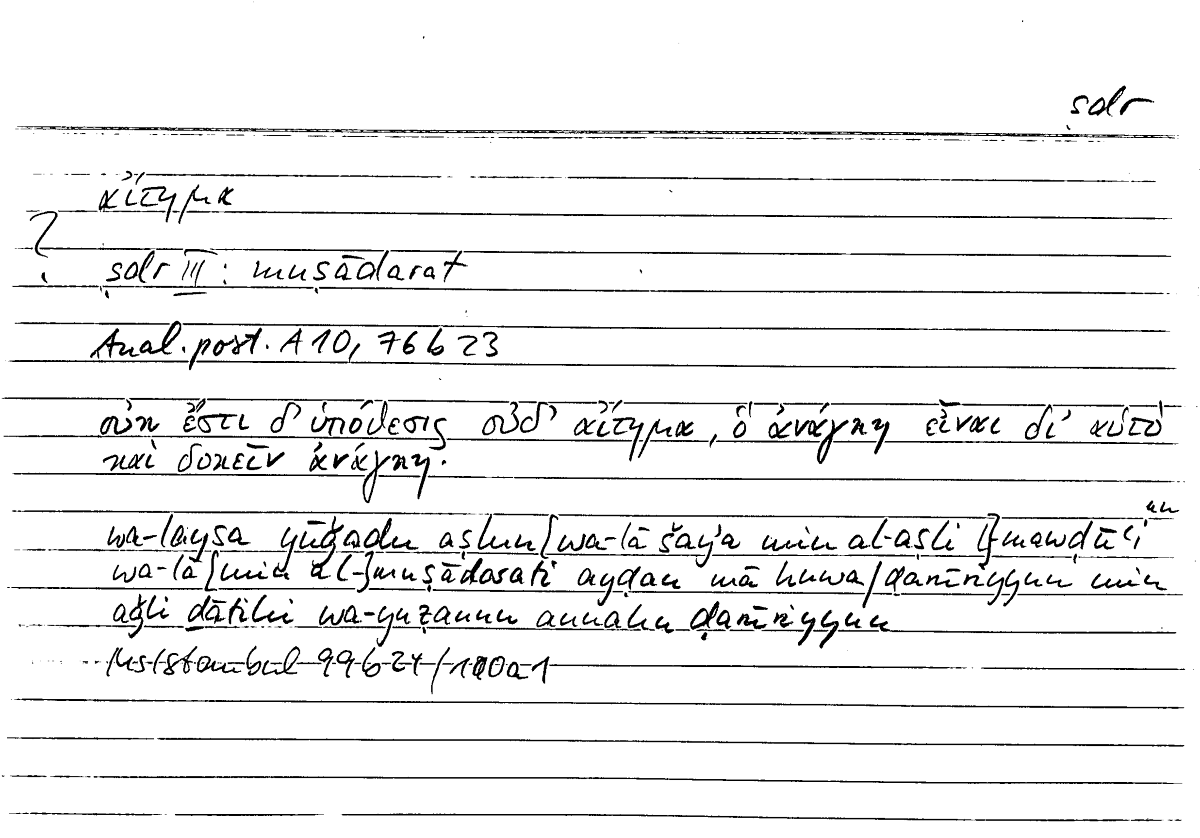 ṣdr
αἴτημα
?
ṣdr III: muṣādarat
Anal. post. A 10, 76 b 23
οὐκ ἔστι δ' ὑπόθεσις οὐδ' αἴτημα, ὃ ἀνάγκη εἶναι δι' αὑτὸ
καὶ δοκεῖν ἀνάγκη.
wa-laysa yūǧadu aṣlun [wa-lā šayʾa min al-aṣli l-]mawḍūʿi un
wa-lā [min al-]muṣādarati ayḍan mā huwa / ḍarūriyyun min
aǧli ḏātihi wa-yuẓannu annahu ḍarūriyyun
Ms Istanbul 99 b 24 / 100 a 1